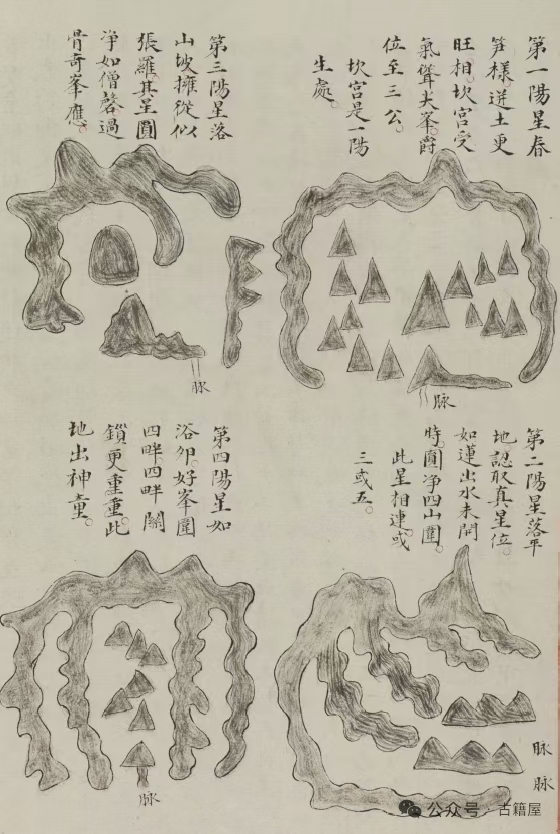 第一陽星春
笋樣。迸土更
旺相。坎宮受
氣聳尖峯。爵
位至三公。
坎宮是一陽
生處。
脉
第二陽星落平
地。認取真星位。
如蓮出水未開
時。圓净四山圍。
此星相連或
三或五。
脉
脉
第三陽星落
山坡擁從似
張羅。其星圓
净如僧磬過
骨奇峯應。
脉
第四陽星如
浴卵。好峯圍
四畔四畔關
鎖更重重。此
地出神童。
脉
公众号·古籍屋